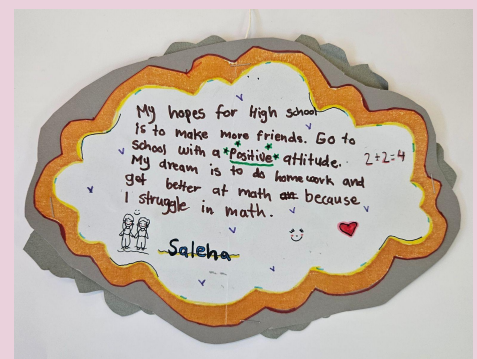 My hopes for High school
is to make more friends. Go to
school with a *Positive* attitude.
2+2=4
My dream is to do homework and
get better at math because
I struggle in math.
Saleha